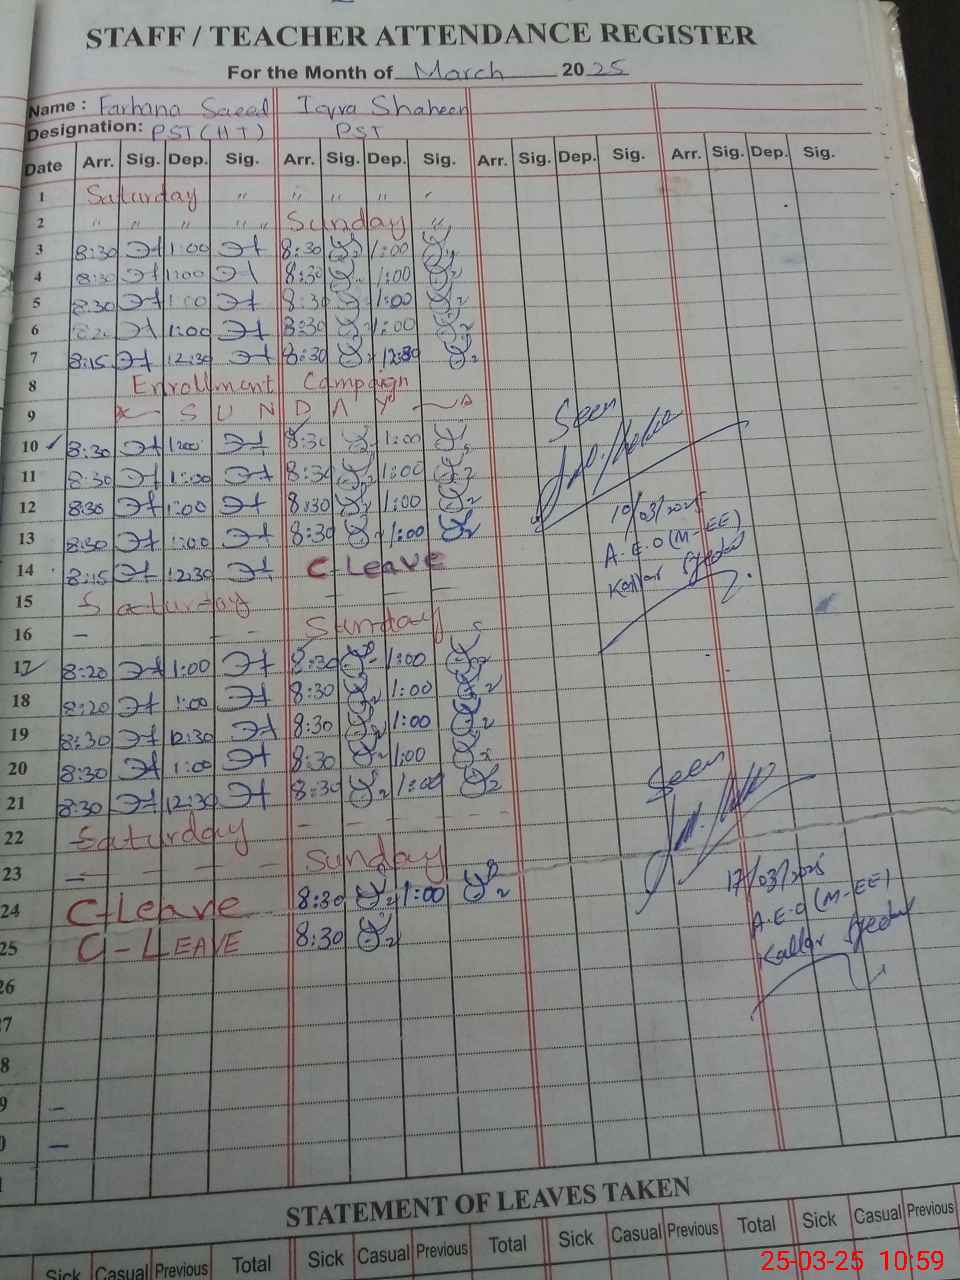 STAFF / TEACHER ATTENDANCE REGISTER
For the Month of March 2025
Name : Farhana Saeed Iqra Shaheen
Designation: PST (HT) PST
Date Arr. Sig. Dep. Sig. Arr. Sig. Dep. Sig. Arr. Sig. Dep. Sig. Arr. Sig. Dep. Sig.
1 Saturday " " " " "
2 " " " " " Sunday "
3 8:30 1:00 8:30 1:00
4 8:30 1:00 8:30 1:00
5 8:30 1:00 8:30 1:00
6 1:00 8:30 1:00
7 8:15 12:30 8:30 12:30
8 Enrollment Campaign
9 S U N D A Y
Seen
10 8:30 1:00 8:30 1:00
11 8:30 1:00 8:30 1:00
12 8:30 1:00 8:30 1:00
10/03/2025
13 8:30 1:00 8:30 1:00
A.E.O (M-EE)
14 8:15 12:30 C-Leave
Kallar Syedan
15 Saturday - - -
16 - - - Sunday
17 8:20 1:00 8:30 1:00
18 8:20 1:00 8:30 1:00
19 8:30 12:30 8:30 1:00
20 8:30 1:00 8:30 1:00
Seen
21 8:30 12:30 8:30 1:00
22 Saturday - - - - - -
23 - - - - Sunday
17/03/2025
24 C-Leave 8:30 1:00
A.E.O (M-EE)
25 C-LEAVE 8:30
Kallar Syedan
26
7
8
9 -
0 -
STATEMENT OF LEAVES TAKEN
Sick Casual Previous Total Sick Casual Previous Total Sick Casual Previous Total Sick Casual Previous
25-03-25 10:59